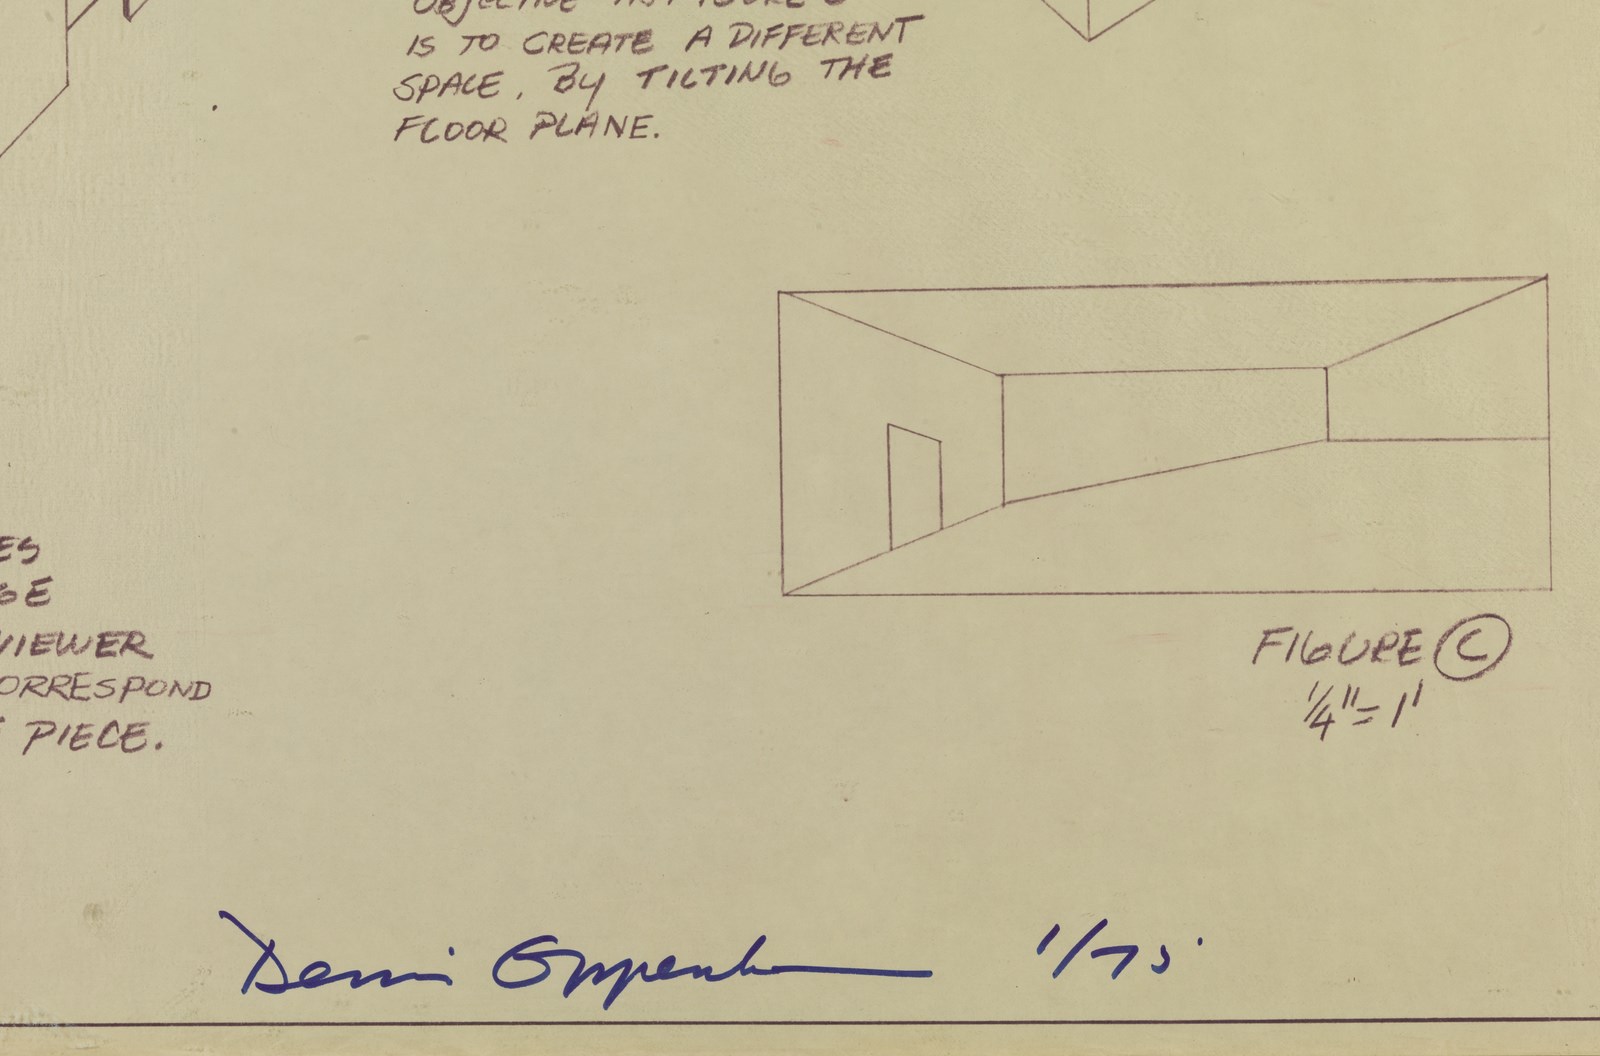 OBJECTIVE IN FIGURE C
IS TO CREATE A DIFFERENT
SPACE, BY TILTING THE
FLOOR PLANE.
ES
GE
VIEWER
ORRESPOND
PIECE.
FIGURE C
1/4"=1'
Dennis Oppenheim 1/75